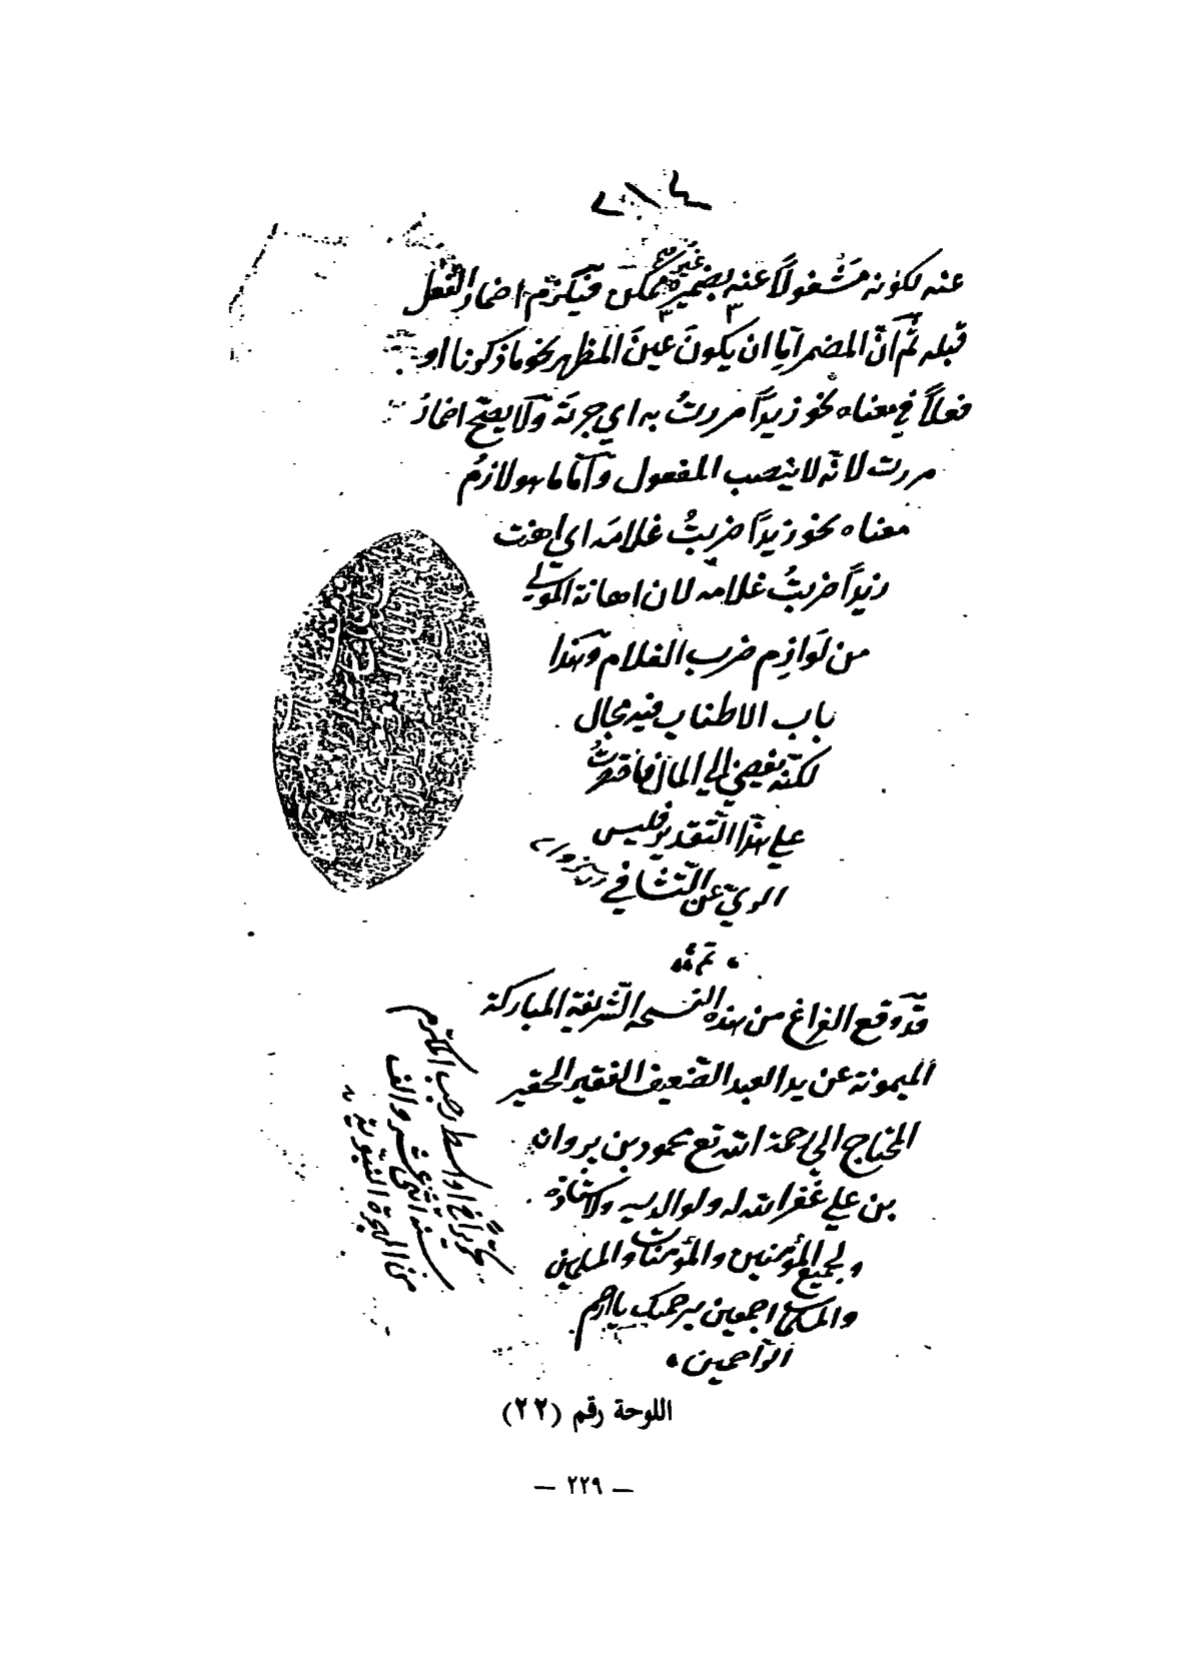 عنه لكونه مشغولاً عنه بضميره غير ممكن فيلزم اضمار الفعل
قبله ثم انّ المضمر امّا ان يكون عين المظهر نحو ما ذكرنا او
فعلاً في معناه نحو زيداً مررتُ به اي جزته ولا يصحّ اضمار
مررت لانّه لا ينصب المفعول وامّا ما هو لازمُ
معناه نحو زيداً ضربتُ غلامَه اي اهنت
زيداً ضربتُ غلامه لان اهانة المولى
من لَوازِم ضرب الغلام وهذا
باب الاطناب فيه مجال
لكنّه يفضي الى الملال فاقتصرتُ
على هذا التقدير فليس
الريّ عن التّشافي
تم
قد وقع الفراغ من هذه النسخة الشريفة المباركة
الميمونة عن يد العبد الضّعيف الفقير الحقير
المحتاج الى رحمة الله تع محمود بن پروانه
بن علي غفر الله له ولوالديه ولاستاذه
ولجميع المؤمنين والمؤمنات والمسلمين
والمسلمات اجمعين برحمتك يا ارحم
الرّاحمين
في اواسط رجب المكرم
سنه اثنى عشر والف
من الهجرة النبوية
اللوحة رقم (٢٢)
— ٢٢٩ —